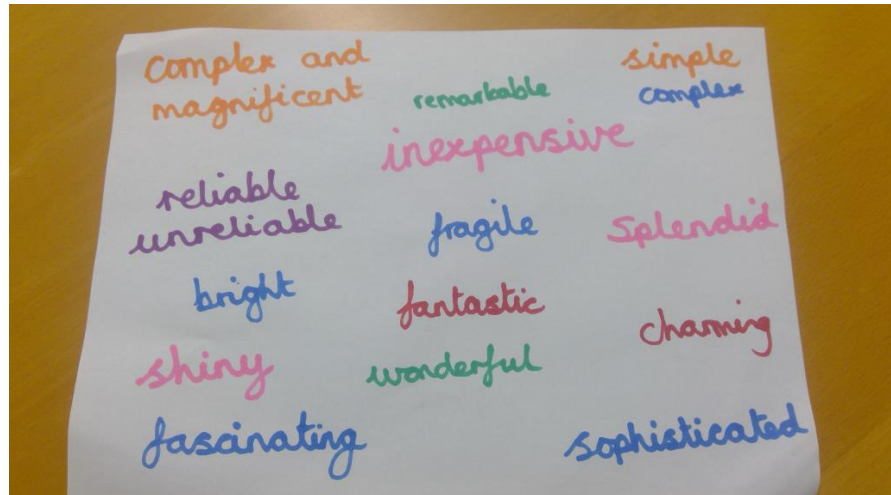 complex and
magnificent
remarkable
simple
complex
inexpensive
reliable
unreliable
fragile
Splendid
bright
fantastic
charming
shiny
wonderful
fascinating
sophisticated